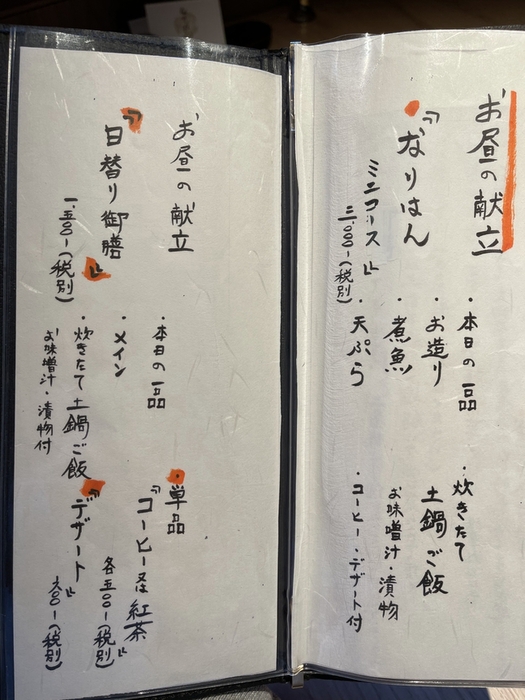 お昼の献立
『なりはん
ミニコース』
三、〇〇〇-(税別)
・本日の一品
・お造り
・煮魚
・天ぷら
・炊きたて
土鍋ご飯
お味噌汁・漬物
・コーヒー・デザート付
お昼の献立
『日替り御膳』
一、五〇〇-(税別)
・本日の一品
・メイン
・炊きたて土鍋ご飯
お味噌汁・漬物付
単品
『コーヒー又は紅茶』
各五〇〇-(税別)
『デザート』
六〇〇-(税別)